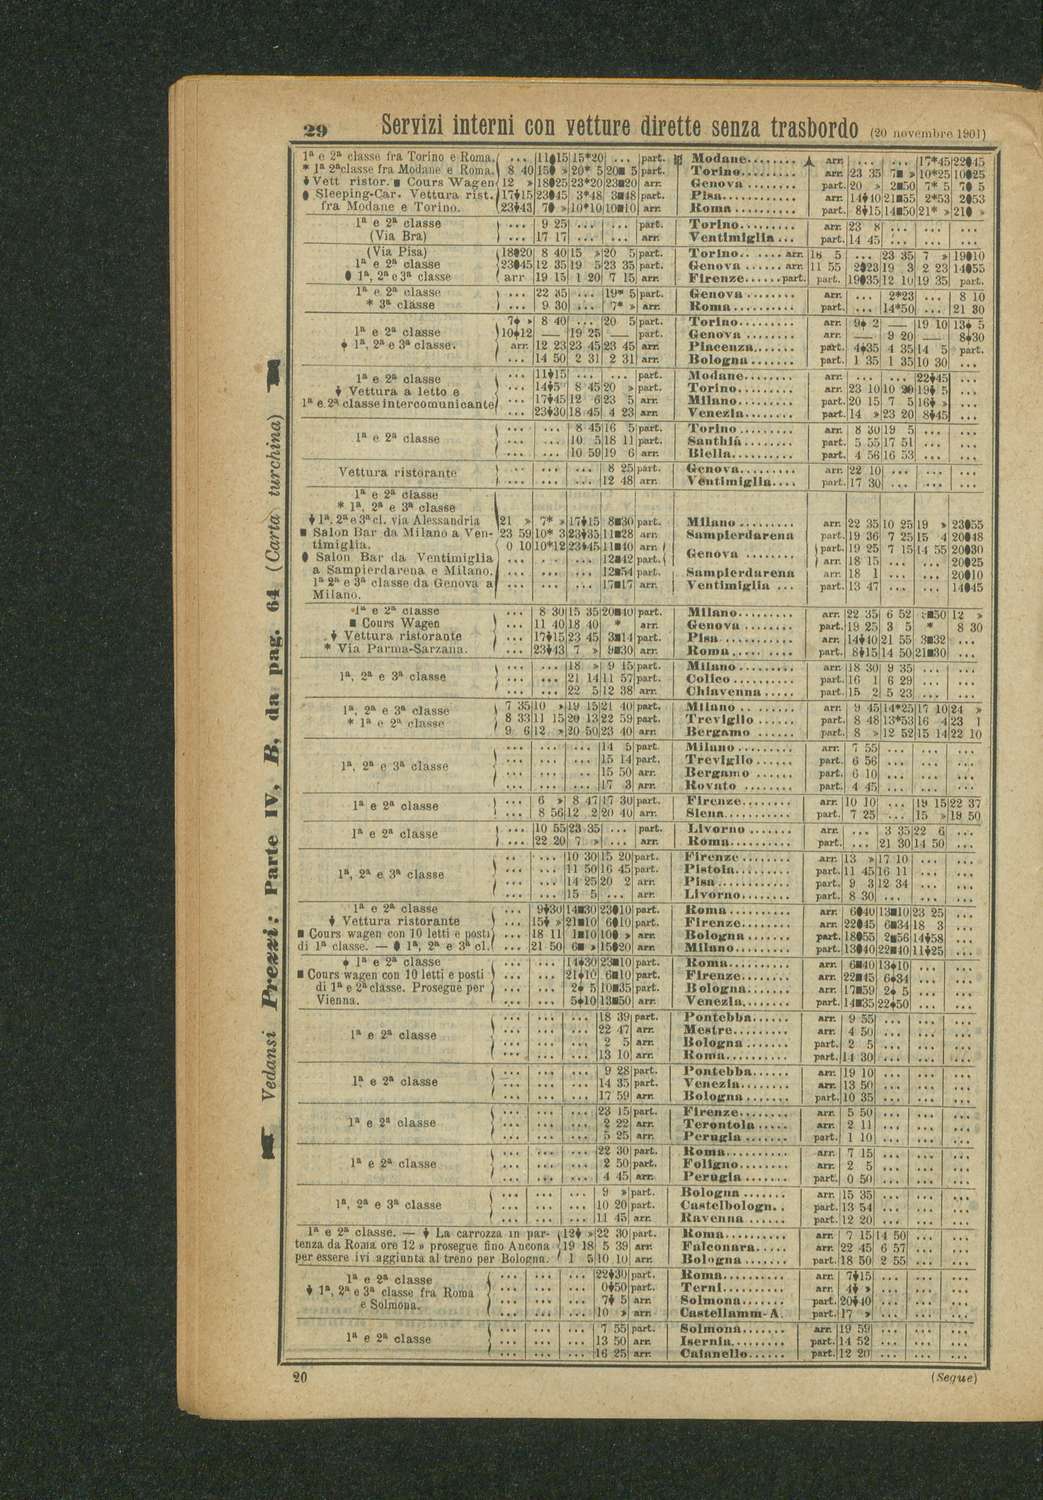 29 Servizi interni con vetture dirette senza trasbordo (20 novembre 1901)
1ª e 2ª classe fra Torino e Roma. ... 11♦15 15*20 ... part. Modane........ arr. ... ... 17*45 22♦45
* 1ª 2ª classe fra Modane e Roma. 8 40 15♦ » 20* 5 20■ 5 part. Torino......... arr. 23 35 7■ » 10*25 10♦25
♦ Vett ristor. ■ Cours Wagen 12 » 18♦25 23*20 23■20 arr. Genova ........ part. 20 » 2■50 7* 5 7♦ 5
● Sleeping-Car. Vettura rist. 17♦15 23♦45 3*48 3■48 part. Pisa........... arr. 14♦40 21■55 2*53 2♦53
fra Modane e Torino. 23♦43 7♦ » 10*10 10■10 arr. Roma .......... part. 8♦15 14■50 21* » 21♦ »
1ª e 2ª classe ... 9 25 ... ... part. Torino......... arr. 23 8 ... ... ...
(Via Bra) ... 17 17 ... ... arr. Ventimiglia ... part. 14 45 ... ... ...
(Via Pisa) 18♦20 8 40 15 » 20 5 part. Torino.. ..... arr. 18 5 ... 23 35 7 » 19♦10
1ª e 2ª classe 23♦45 12 35 19 5 23 35 part. Genova ...... arr. 11 55 2♦23 19 3 2 23 14♦55
● 1ª, 2ª e 3ª classe arr 19 15 1 20 7 15 arr. Firenze..... part. part. 19♦35 12 10 19 35 part.
1ª e 2ª classe ... 22 35 ... 19* 5 part. Genova ........ arr. ... 2*23 ... 8 10
* 3ª classe ... 9 30 ... 7* » arr. Roma .......... part. ... 14*50 ... 21 30
7♦ » 8 40 ... 20 5 part. Torino......... arr. 9♦ 2 — 19 10 13♦ 5
1ª e 2ª classe 10♦12 — 19 25 — part. Genova ........ arr. — 9 20 — 8♦30
♦ 1ª, 2ª e 3ª classe. arr. 12 23 23 45 23 45 arr. Piacenza....... part. 4♦35 4 35 14 5 part.
... 14 50 2 31 2 31 arr. Bologna ....... part. 1 35 1 35 10 30 ...
1ª e 2ª classe ... 11♦15 ... ... part. Modane........ arr. ... ... 22♦45 ...
♦ Vettura a letto e ... 14♦5 8 45 20 » part. Torino......... arr. 23 10 10 20 19♦ 5 ...
1ª e 2ª classe intercomunicante ... 17♦45 12 6 23 5 arr. Milano ........ part. 20 15 7 5 16♦ » ...
... 23♦30 18 45 4 23 arr. Venezia........ part. 14 » 23 20 8♦45 ...
... ... 8 45 16 5 part. Torino ......... arr. 8 30 19 5 ... ...
1ª e 2ª classe ... ... 10 5 18 11 part. Santhià ....... part. 5 55 17 51 ... ...
... ... 10 59 19 6 arr. Biella.......... part. 4 56 16 53 ... ...
Vettura ristorante ... ... ... 8 25 part. Genova......... arr. 22 10 ... ... ...
... ... ... 12 48 arr. Ventimiglia.... part. 17 30 ... ... ...
1ª e 2ª classe
* 1ª, 2ª e 3ª classe
♦ 1ª. 2ª e 3ª cl. via Alessandria 21 » 7* » 17♦15 8■30 part. Milano ......... arr. 22 35 10 25 19 » 23♦55
■ Salon Bar da Milano a Ven- 23 59 10* 3 23♦35 11■28 arr. Sampierdarena part. 19 36 7 25 15 4 20♦48
timiglia. 0 10 10*12 23♦45 11■40 arr. Genova ........ part. 19 25 7 15 14 55 20♦30
● Salon Bar da Ventimiglia ... ... ... 12■42 part. arr. 18 15 ... ... 20♦25
a Sampierdarena e Milano. ... ... ... 12■54 part. Sampierdarena arr. 18 1 ... ... 20♦10
1ª 2ª e 3ª classe da Genova a ... ... ... 17■17 arr. Ventimiglia ... part. 13 47 ... ... 14♦45
Milano.
1ª e 2ª classe ... 8 30 15 35 20■40 part. Milano......... arr. 22 35 6 52 8■50 12 »
■ Cours Wagen ... 11 40 18 40 * arr. Genova ........ part. 19 25 3 5 * 8 30
♦ Vettura ristorante ... 17♦15 23 45 3■14 part. Pisa ........... arr. 14♦40 21 55 3■32 ...
* Via Parma-Sarzana. ... 23♦43 7 » 9■30 arr. Roma .......... part. 8♦15 14 50 21■30 ...
... ... 18 » 9 15 part. Milano ........ arr. 18 30 9 35 ... ...
1ª, 2ª e 3ª classe ... ... 21 14 11 57 part. Colico ......... part. 16 1 6 29 ... ...
... ... 22 5 12 38 arr. Chiavenna ..... part. 15 2 5 23 ... ...
1ª, 2ª e 3ª classe 7 35 10 » 19 15 21 40 part. Milano ........ arr. 9 45 14*25 17 10 24 »
* 1ª e 2ª classe 8 33 11 15 20 13 22 59 part. Treviglio ...... part. 8 48 13*53 16 4 23 1
9 6 12 » 20 50 23 40 arr. Bergamo ...... part. 8 » 12 52 15 14 22 10
... ... ... 14 5 part. Milano ......... arr. 7 55 ... ... ...
1ª, 2ª e 3ª classe ... ... ... 15 14 part. Treviglio...... part. 6 56 ... ... ...
... ... ... 15 50 arr. Bergamo ...... part. 6 10 ... ... ...
... ... ... 17 3 arr. Rovato ........ part. 4 45 ... ... ...
1ª e 2ª classe ... 6 » 8 47 17 30 part. Firenze........ arr. 10 10 ... 19 15 22 37
... 8 56 12 2 20 40 arr. Siena.......... part. 7 25 ... 15 » 18 50
1ª e 2ª classe ... 10 55 23 35 ... part. Livorno ....... arr. ... 3 35 22 6 ...
... 22 20 7 » ... arr. Roma.......... part. ... 21 30 14 50 ...
... ... 10 30 15 20 part. Firenze ........ arr. 13 » 17 10 ... ...
1ª, 2ª e 3ª classe ... ... 11 50 16 45 part. Pistoia......... part. 11 45 16 11 ... ...
... ... 14 25 20 2 arr. Pisa............ part. 9 5 12 34 ... ...
... ... 15 5 ... arr. Livorno........ part. 8 30 ... ... ...
1ª e 2ª classe ... 9♦30 14■30 23●10 part. Roma .......... arr. 6●40 13■10 23 25 ...
♦ Vettura ristorante ... 15♦ » 21■10 6●10 part. Firenze ........ arr. 22●45 6■34 18 3 ...
■ Cours wagen con 10 letti e posti ... 18 11 1■10 10● » arr. Bologna ....... part. 18●55 2■56 14♦58 ...
di 1ª classe. — ● 1ª, 2ª e 3ª cl. ... 21 50 6■ » 15●20 arr. Milano......... part. 13●40 22■40 11♦25 ...
♦ 1ª e 2ª classe ... ... 14♦30 23■10 part. Roma.......... arr. 6■40 13♦10 ... ...
■ Cours wagen con 10 letti e posti ... ... 21♦10 6■10 part. Firenze........ arr. 22■45 6♦34 ... ...
di 1ª e 2ª classe. Prosegue per ... ... 2♦ 5 10■35 part. Bologna....... arr. 17■59 2♦ 5 ... ...
Vienna. ... ... 5♦10 13■50 arr. Venezia........ part. 14■35 22♦50 ... ...
... ... ... 18 39 part. Pontebba...... arr. 9 55 ... ... ...
1ª e 2ª classe ... ... ... 22 47 arr. Mestre......... arr. 4 50 ... ... ...
... ... ... 2 5 arr. Bologna ....... part. 2 5 ... ... ...
... ... ... 13 10 arr. Roma.......... part. 14 30 ... ... ...
... ... ... 9 28 part. Pontebba...... arr. 19 10 ... ... ...
1ª e 2ª classe ... ... ... 14 35 part. Venezia........ arr. 13 50 ... ... ...
... ... ... 17 59 arr. Bologna....... part. 10 35 ... ... ...
... ... ... 23 15 part. Firenze........ arr. 5 50 ... ... ...
1ª e 2ª classe ... ... ... 2 22 arr. Terontola ..... arr. 2 11 ... ... ...
... ... ... 5 25 arr. Perugia ....... part. 1 10 ... ... ...
... ... ... 22 30 part. Roma.......... arr. 7 15 ... ... ...
1ª e 2ª classe ... ... ... 2 50 part. Foligno........ arr. 2 5 ... ... ...
... ... ... 4 45 arr. Perugia ....... part. 0 50 ... ... ...
... ... ... 9 » part. Bologna ....... arr. 15 35 ... ... ...
1ª, 2ª e 3ª classe ... ... ... 10 20 part. Castelbologn. . part. 13 54 ... ... ...
... ... ... 11 45 arr. Ravenna ...... part. 12 20 ... ... ...
1ª e 2ª classe. — ♦ La carrozza in par- 12♦ » 22 30 part. Roma.......... arr. 7 15 14 50 ... ...
tenza da Roma ore 12 » prosegue fino Ancona 19 18 5 39 arr. Falconara..... arr. 22 45 6 57 ... ...
per essere ivi aggiunta al treno per Bologna. 1 5 10 10 arr. Bologna....... part. 18 50 2 55 ... ...
1ª e 2ª classe ... ... ... 22♦30 part. Roma.......... arr. 7♦15 ... ... ...
♦ 1ª, 2ª e 3ª classe fra Roma ... ... ... 0♦50 part. Terni.......... arr. 4♦ » ... ... ...
e Solmona. ... ... ... 7♦ 5 arr. Solmona....... part. 20♦40 ... ... ...
... ... ... 10 » arr. Castellamm-A. part. 17 » ... ... ...
... ... ... 7 55 part. Solmona....... arr. 19 59 ... ... ...
1ª e 2ª classe ... ... ... 13 50 arr. Isernia......... part. 14 52 ... ... ...
... ... ... 16 25 arr. Caianello...... part. 12 20 ... ... ...
20 (Segue)
Vedansi Prezzi; Parte IV, B, da pag. 64 (Carta turchina)